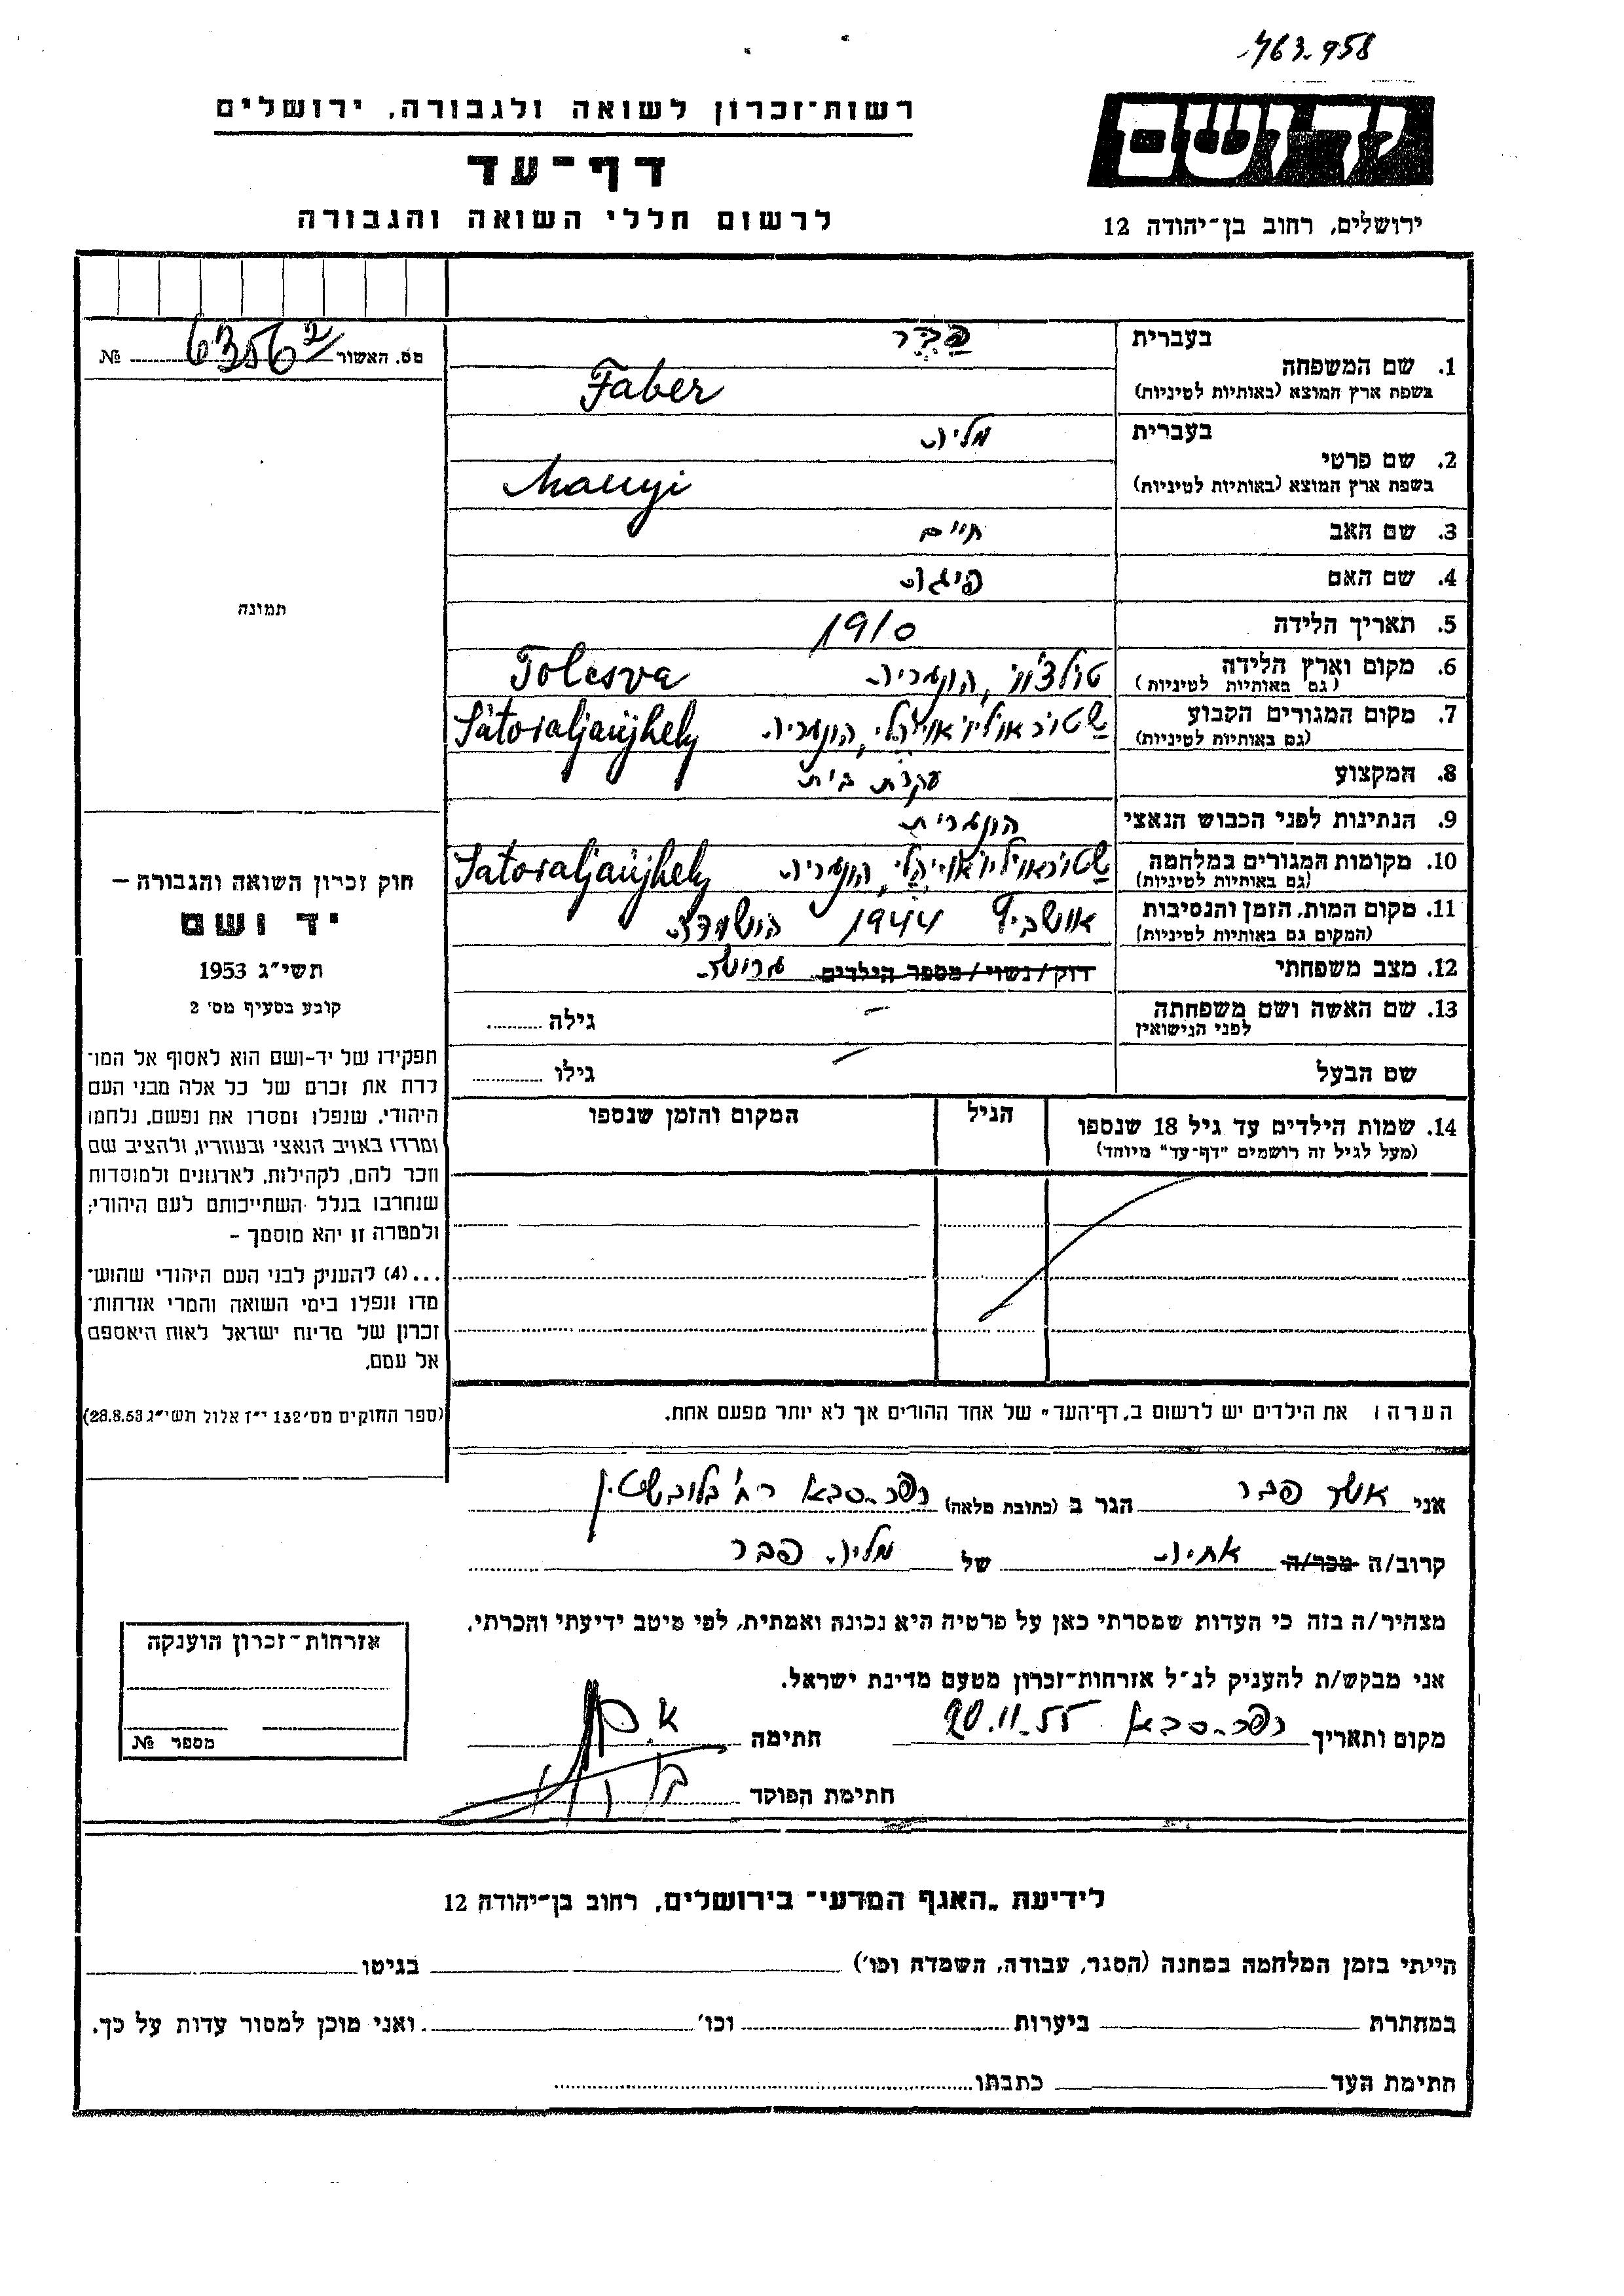 463.958
רשות־זכרון לשואה ולגבורה, ירושלים
יד ושם
דף־עד
לרשום חללי השואה והגבורה
ירושלים, רחוב בן־יהודה 12
מס. האשור 63562 №
1. שם המשפחה
בעברית פבר
בשפת ארץ המוצא (באותיות לטיניות) Faber
2. שם פרטי
בעברית
בשפת ארץ המוצא (באותיות לטיניות)
3. שם האב חיים
4. שם האם
5. תאריך הלידה 1910
6. מקום וארץ הלידה הונגריה Tolcsva
(גם באותיות לטיניות)
7. מקום המגורים הקבוע הונגריה Sátoraljaújhely
(גם באותיות לטיניות)
8. המקצוע עקרת בית
9. הנתינות לפני הכבוש הנאצי הונגרית
10. מקומות המגורים במלחמה הונגריה Sátoraljaújhely
(גם באותיות לטיניות)
11. מקום המות, הזמן והנסיבות אושביץ 1944 הושמדה
(המקום גם באותיות לטיניות)
12. מצב משפחתי רוק/נשוי/מספר הילדים
13. שם האשה ושם משפחתה גילה
לפני הנישואין
שם הבעל גילו
14. שמות הילדים עד גיל 18 שנספו הגיל המקום והזמן שנספו
(מעל לגיל זה רושמים "דף־עד" מיוחד)
הערה: את הילדים יש לרשום ב„דף־העד" של אחד ההורים אך לא יותר מפעם אחת.
תמונה
חוק זכרון השואה והגבורה –
יד ושם
תשי"ג 1953
קובע בסעיף מס' 2
תפקידו של יד-ושם הוא לאסוף אל המו־
לדת את זכרם של כל אלה מבני העם
היהודי, שנפלו ומסרו את נפשם, נלחמו
ומרדו באויב הנאצי ובעוזריו, ולהציב שם
וזכר להם, לקהילות, לארגונים ולמוסדות
שנחרבו בגלל השתייכותם לעם היהודי;
ולמטרה זו יהא מוסמך –
...(4) להעניק לבני העם היהודי שהוש־
מדו ונפלו בימי השואה והמרי אזרחות־
זכרון של מדינת ישראל לאות היאספם
אל עמם.
(ספר החוקים מס' 132 י"ז אלול תשי"ג 28.8.53)
אני אשר פבר הגר ב (כתובת מלאה) כפר-סבא רח'
קרוב/ה מכר/ה של פבר
מצהיר/ה בזה כי העדות שמסרתי כאן על פרטיה היא נכונה ואמתית, לפי מיטב ידיעתי והכרתי.
אני מבקש/ת להעניק לנ"ל אזרחות־זכרון מטעם מדינת ישראל.
מקום ותאריך כפר-סבא 20.11.55 חתימה
חתימת הפוקד
אזרחות־זכרון הוענקה
מספר №
לידיעת „האגף המדעי" בירושלים, רחוב בן־יהודה 12
הייתי בזמן המלחמה במחנה (הסגר, עבודה, השמדה וכו') בגיטו
במחתרת ביערות וכו' ואני מוכן למסור עדות על כך.
חתימת העד כתבתו